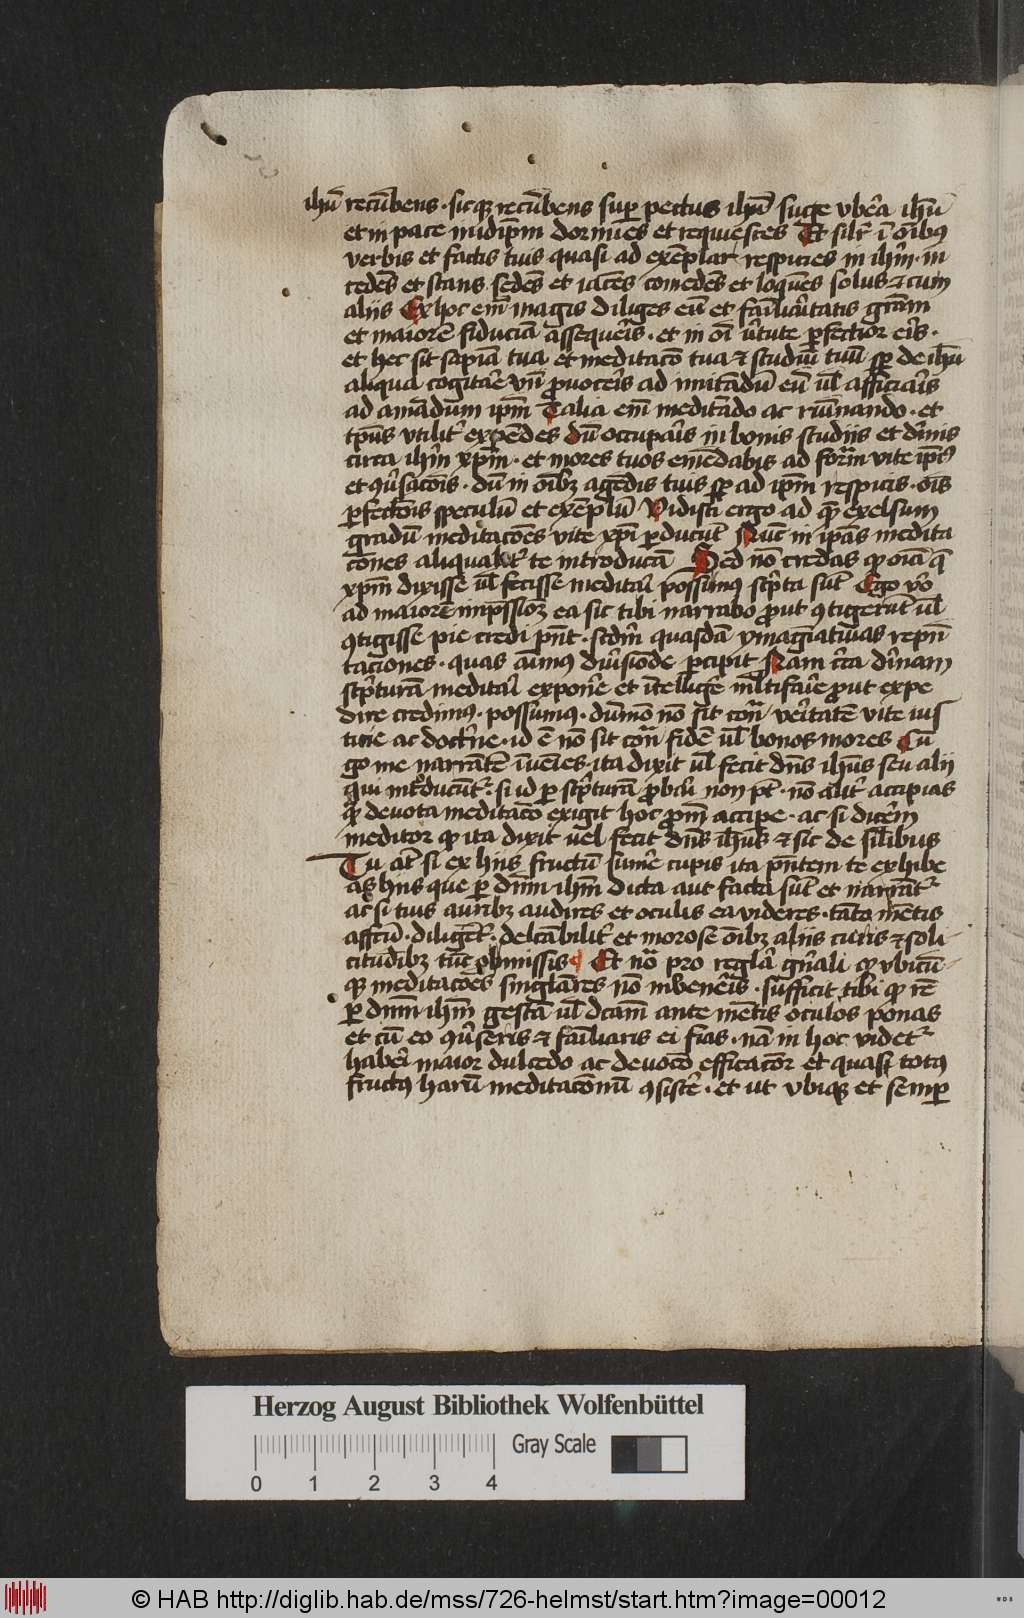 ihū recūbens · sicqꝫ recūbens suꝑ pectus ihū suge vbera ihū
et in pace in idipm̄ dormies et requiesces Et silr ī oībus
verbis et factis tuis quasi ad exēplar respicies in ihm̄ · in
cedēs et stans sedēs et iacēs comedēs et loquēs solus ⁊ cum
aliis Ex hoc em̄ magis diliges eū et familiaritatis grām
et maiorē fiduciā assequeris · et in oī v̄tute ꝑfectior eris ·
et hec sit sapīa tua et meditacō tua ⁊ studiū tuū sꝑ de ihū
aliqua cogitare vn̄ ꝓuoceris ad imitādū eū vl̄ afficiaris
ad amādum ipm̄ Talia em̄ meditādo ac rumīnando · et
tp̄us vtilitˀ expēdes dū occuparis in bonis studiis et diuīnis
circa ihm̄ xpm̄ · et mores tuos emēdabis ad formā vite ipīˀ
et ꝯuˀsacōis · dū in oībꝫ agēdis tuis sꝑ ad ipm̄ respicis · oīs
ꝑfectōis speculū et exēplū Vidisti ergo ad quē exelsum
gradū meditacōes vite xpī ꝑducūt Nūc in ipas medita
cōnes aliqualitˀ te introducā Sed nō credas ꝙ oīa que
xpm̄ dixisse vl̄ fecisse meditari possumus scpˀta sūt Ego vō
ad maiorē impssioꝫ ea sic tibi narrabo ꝓut ꝯtigerūt vl̄
ꝯtigisse pie credi pn̄t · scdm̄ quasdā ymaginatiuas rep̄n
taciones · quas aīmus diuˀsimode ꝑcipit Nam circa diuīnam
scpˀturam meditari exponˀe et intelligˀe mltīfarie ꝓut expe
dire credimus · possumus · dūmo nō sit contra veritatē vite ius
ticie ac doctrīne · id ē nō sit contra fidē vl̄ bonos mores Cū
go me narrātē īuēies · ita dixit vl̄ fecit dn̄s ihūs seu alii
qui introducūtˀ · si id ꝑ scpˀturā ꝓbari non pt̄ · nō alitˀ accipias
qᷓ deuota meditacō exigit hoc ꝓm accipe · ac si dicerem
meditor ꝙ ita dixit uel fecit dn̄s ihūs ⁊ sic de silībus
Tu at̄ si ex hiis fructū sumˀe cupis ita pn̄tem te exhibe
as hiis que ꝑ dnm̄ ihm̄ dicta aut facta sūt et narrātˀ
ac si tuis auribꝫ audires et oculis ea videres · tōto mētis
affectū · diligētˀ · delcābilitˀ et morose oībꝫ aliis curis ⁊ soli
citudībꝫ tūc obmissis Et nō pro regula gn̄ali ꝙ vbicū
qꝫ meditacōes singlares nō inveneris · sufficit tibi ꝙ rē
ꝑ dnm̄ ihm̄ gestā vl̄ dcām ante mētis oculos ponas
et cū eo ꝯuˀseris ⁊ familiaris ei fias · nā in hoc videtˀ
haberi maior dulcedo ac deuocō efficacior et quasi totus
fructus harū meditacōnū ꝯsistˀe · et ut vbiqꝫ et semꝑ
Herzog August Bibliothek Wolfenbüttel
Gray Scale
0 1 2 3 4
© HAB http://diglib.hab.de/mss/726-helmst/start.htm?image=00012